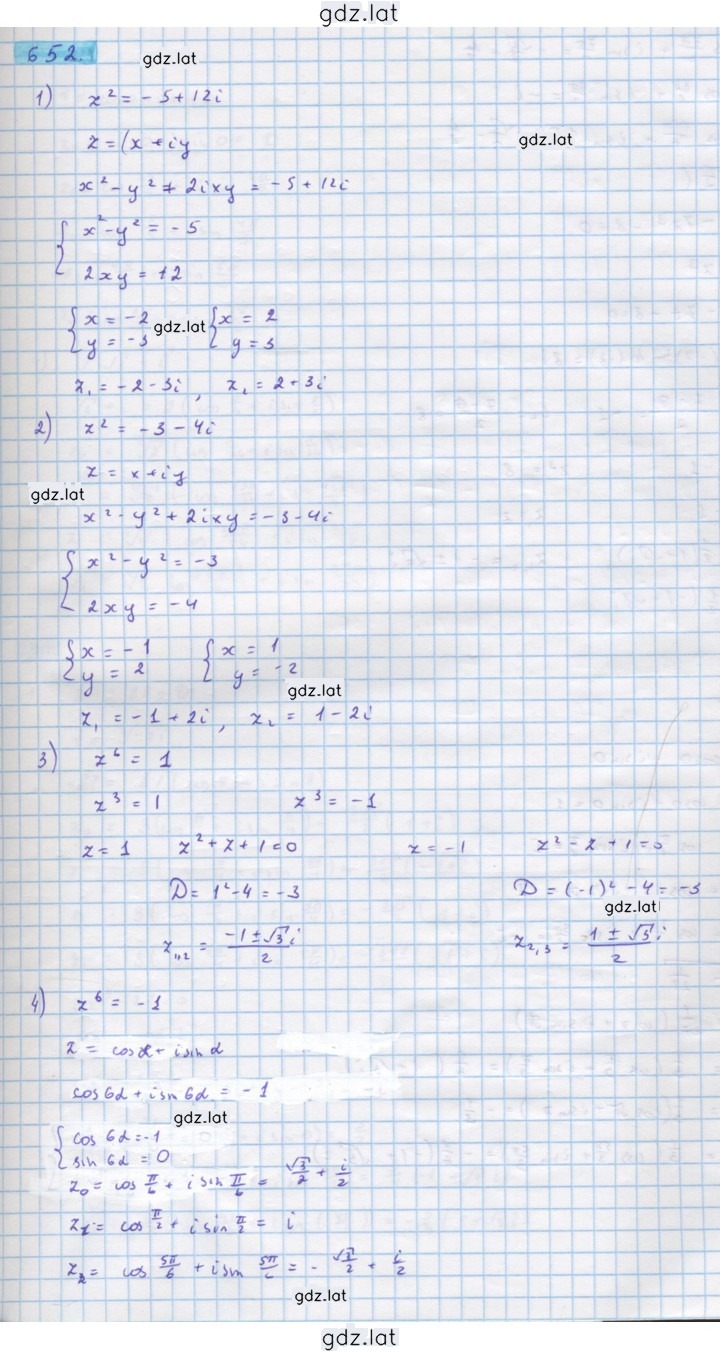 gdz.lat
652.
gdz.lat
1) z² = - 5 + 12i
z = (x + iy
gdz.lat
x² - y² + 2ixy = -5 + 12i
{ x² - y² = - 5
2xy = 12
{ x = -2 { x = 2
gdz.lat
y = -3 y = 3
z₁ = -2 - 3i , z₂ = 2 + 3i
2) z² = -3 - 4i
z = x + iy
gdz.lat
x² - y² + 2ixy = -3 - 4i
{ x² - y² = -3
2xy = -4
{ x = -1 { x = 1
y = 2 y = -2
gdz.lat
z₁ = -1 + 2i , z₂ = 1 - 2i
3) z⁶ = 1
z³ = 1 z³ = -1
z = 1 z² + z + 1 = 0 z = -1 z² - z + 1 = 0
D = 1² - 4 = -3 D = (-1)² - 4 = -3
gdz.lat
z₁,₂ = (-1 ± √3 i)/2 z₂,₃ = (1 ± √3 i)/2
4) z⁶ = -1
z = cosα + i sinα
cos6α + i sin6α = -1
gdz.lat
{ cos 6α = -1
sin 6α = 0
z₀ = cos π/6 + i sin π/6 = √3/2 + i/2
z₁ = cos π/2 + i sin π/2 = i
z₂ = cos 5π/6 + i sin 5π/6 = - √3/2 + i/2
gdz.lat
gdz.lat